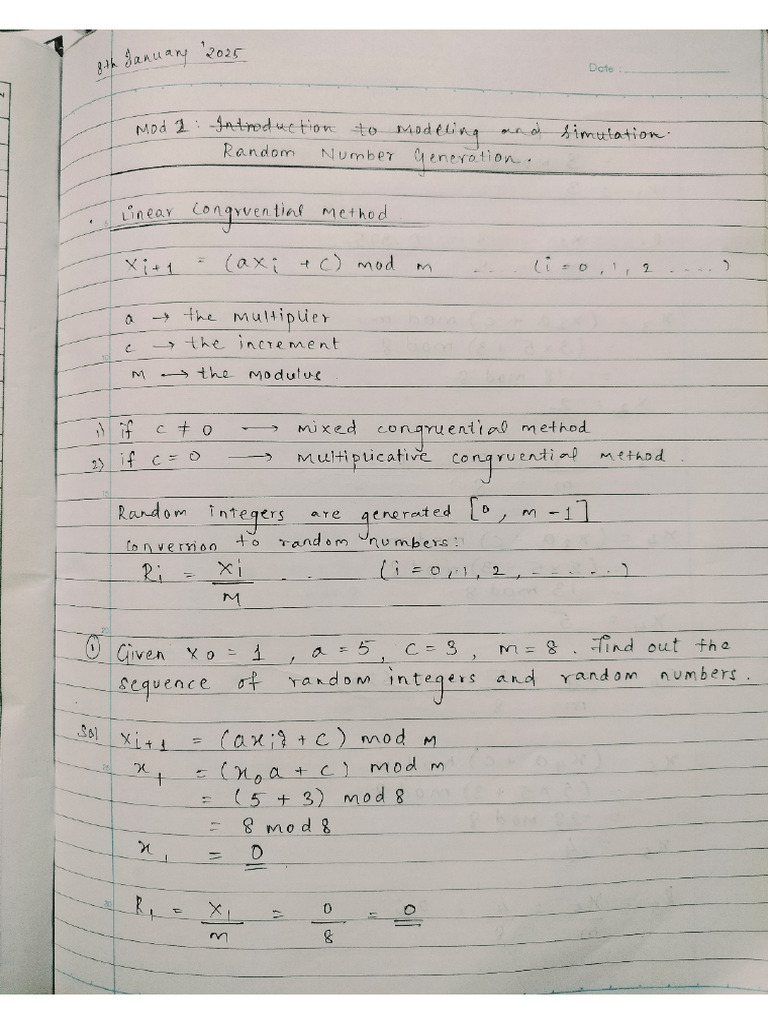 8th January '2025
Date :
Mod 1 : Introduction to Modeling and Simulation.
Random Number Generation.
. Linear Congruential Method
Xi+1 = (aXi + C) mod m .... (i = 0, 1, 2 .....)
a → the multiplier
c → the increment
M → the Modulus
1) if c ≠ 0 → mixed congruential method
2) if c = 0 → Multiplicative congruential method.
Random integers are generated [0, m-1]
Conversion to random numbers:
Ri = Xi/M ... (i = 0, 1, 2, .......)
① Given X0 = 1, a = 5, C = 3, m = 8. Find out the
sequence of random integers and random numbers.
Sol Xi+1 = (axi + c) mod M
x1 = (x0a + c) mod m
= (5 + 3) mod 8
= 8 mod 8
x1 = 0
R1 = X1/m = 0/8 = 0